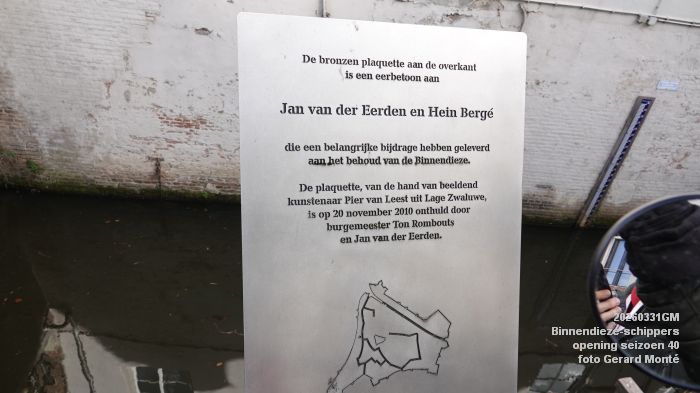 De bronzen plaquette aan de overkant
is een eerbetoon aan
Jan van der Eerden en Hein Bergé
die een belangrijke bijdrage hebben geleverd
aan het behoud van de Binnendieze.
De plaquette, van de hand van beeldend
kunstenaar Pier van Leest uit Lage Zwaluwe,
is op 20 november 2010 onthuld door
burgemeester Ton Rombouts
en Jan van der Eerden.
20260331GM
Binnendieze-schippers
opening seizoen 40
foto Gerard Monté